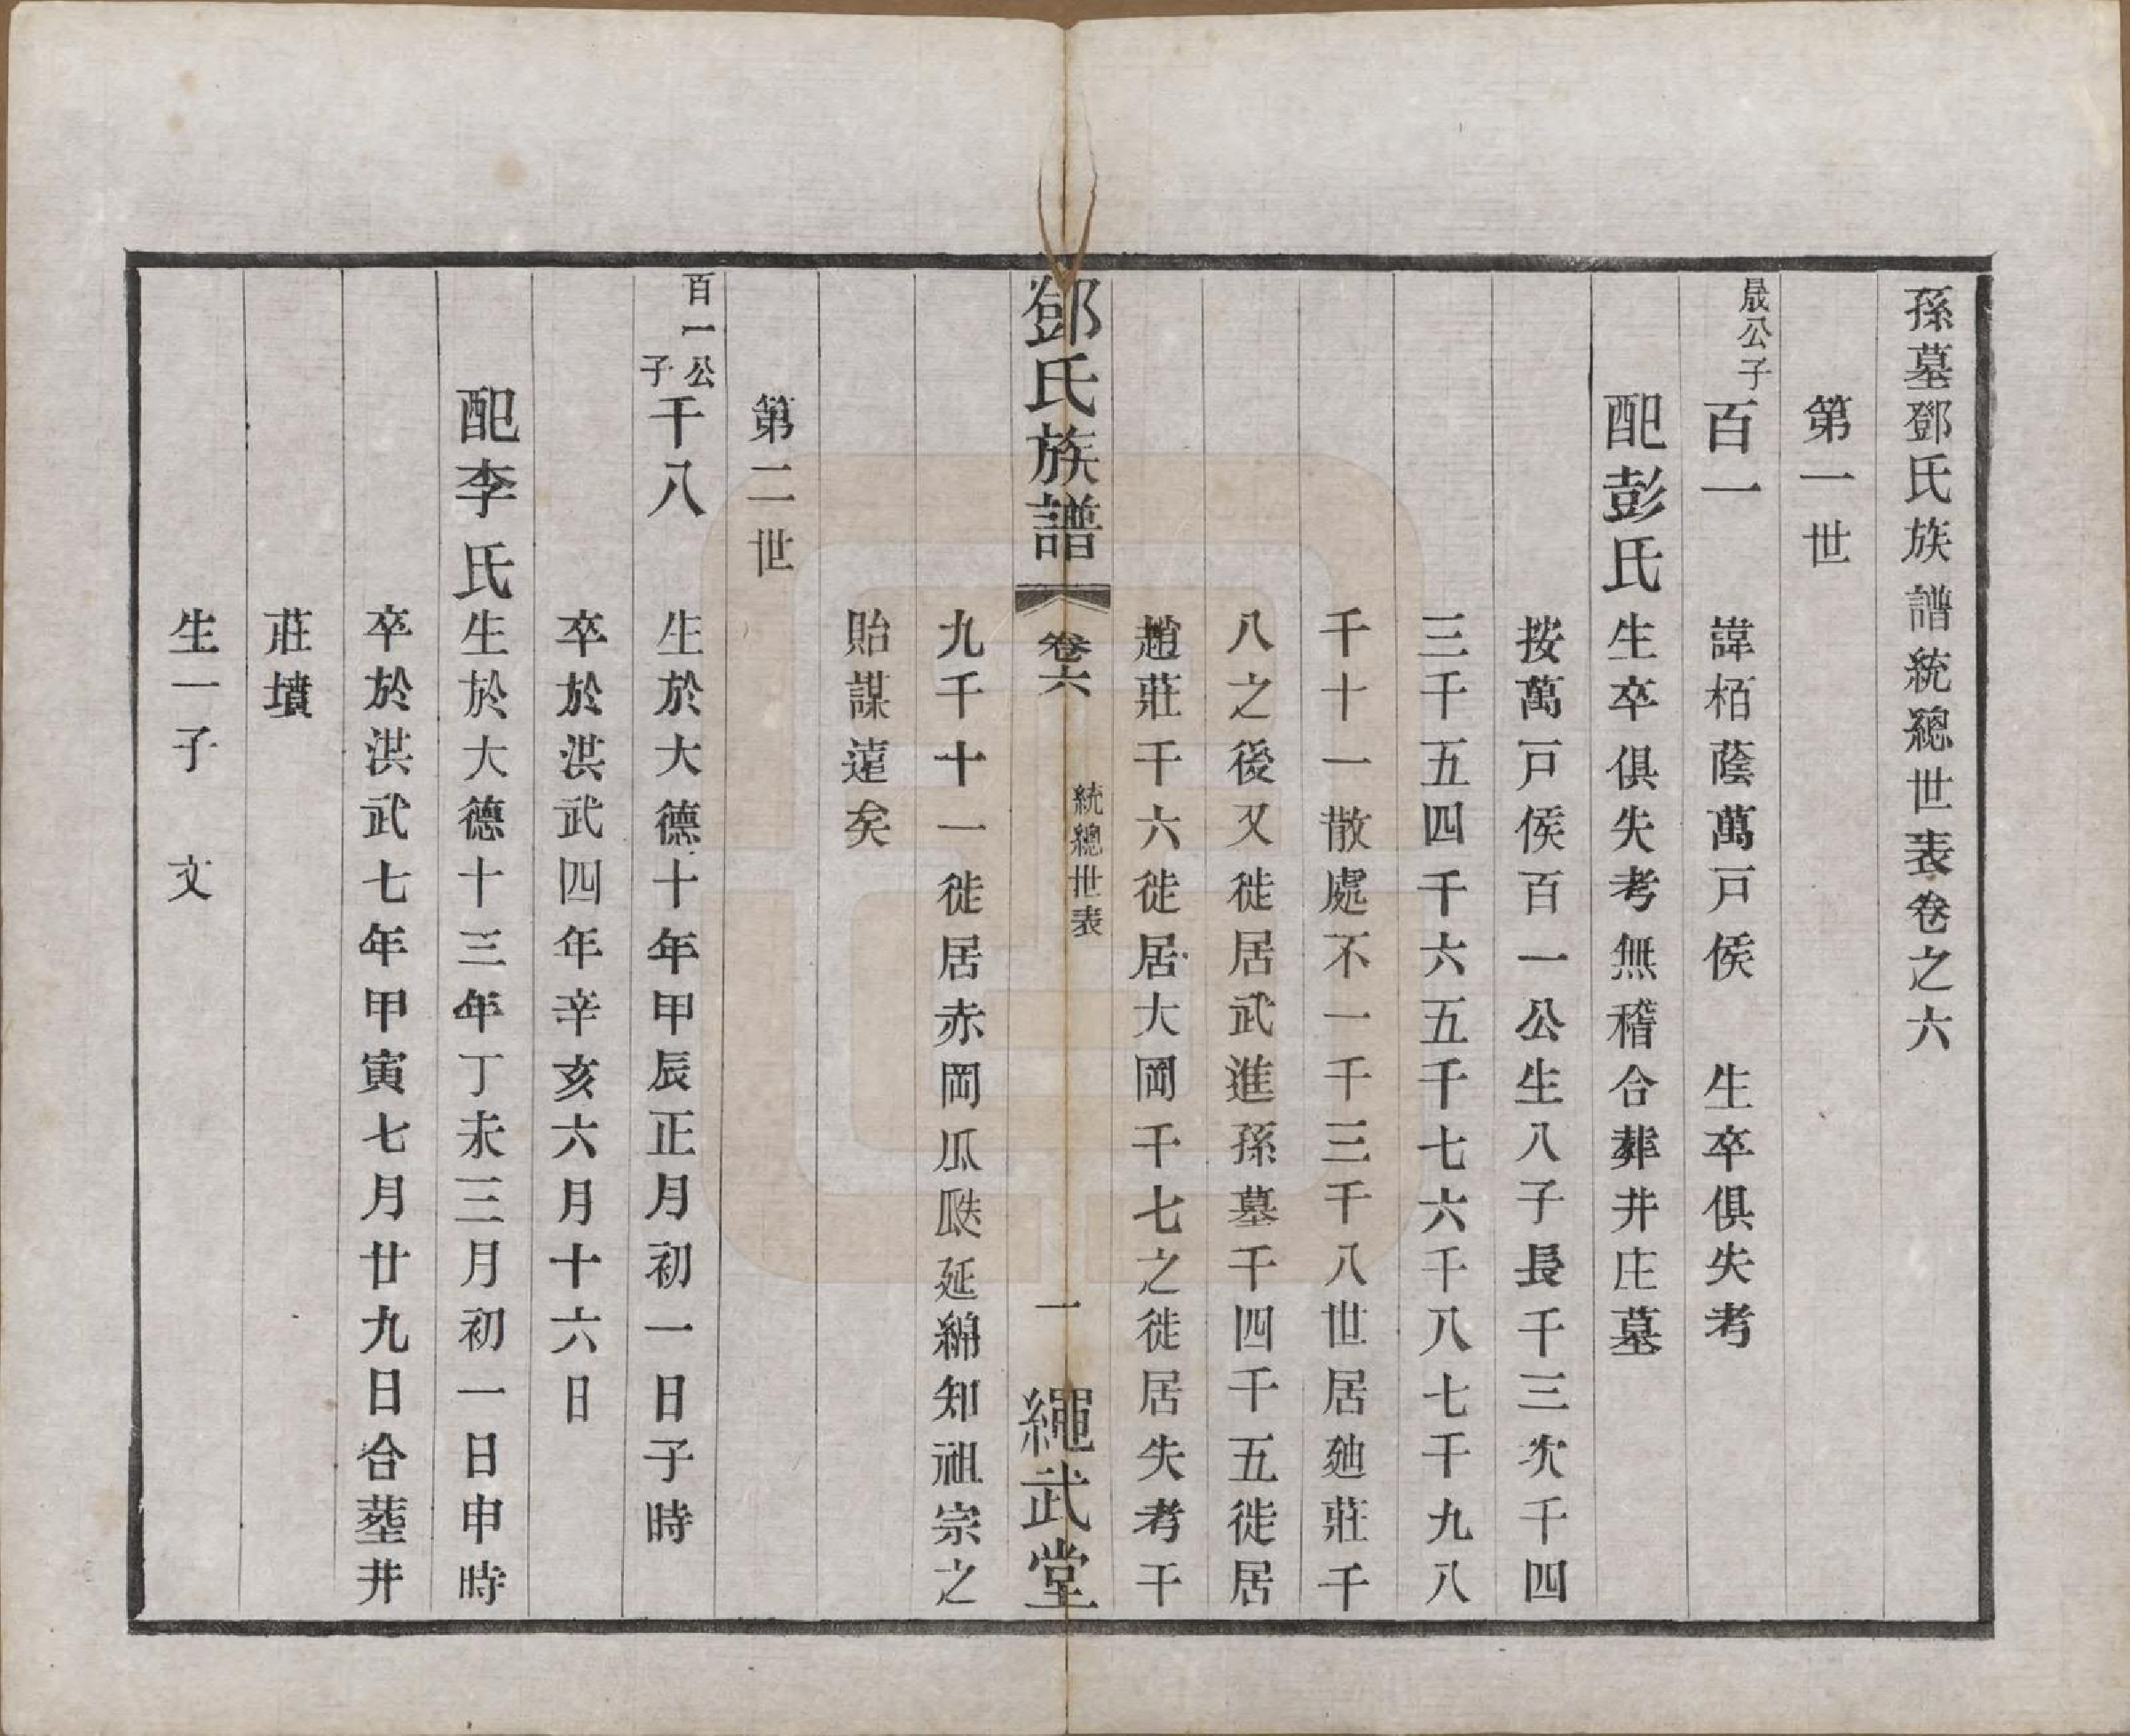 孫墓鄧氏族譜統總世表卷之六
第一世
晟公子 百一 諱栢蔭萬戸侯 生卒俱失考
配彭氏 生卒俱失考無稽合葬井庄墓
按萬戸侯百一公生八子長千三次千四
三千五四千六五千七六千八七千九八
千十一散處不一千三千八世居廸莊千
八之後又徙居武進孫墓千四千五徙居
趙莊千六徙居大岡千七之徙居失考千
鄧氏族譜 卷六 統總世表 一 繩武堂
九千十一徙居赤岡瓜瓞延綿知祖宗之
貽謀遠矣
第二世
百一公子 千八 生於大德十年甲辰正月初一日子時
卒於洪武四年辛亥六月十六日
配李氏 生於大德十三年丁未三月初一日申時
卒於洪武七年甲寅七月廿九日合塟井
莊墳
生一子 文